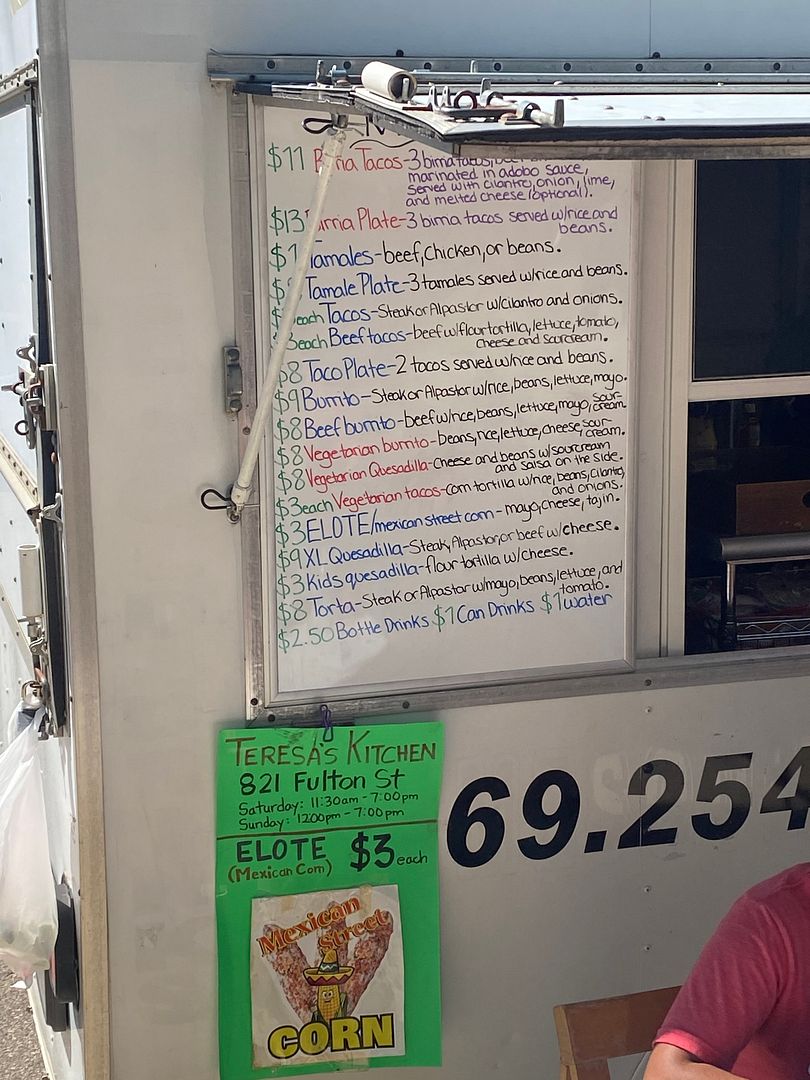 $11 Birria Tacos-3 birria tacos,
marinated in adobo sauce,
served with cilantro, onion, lime,
and melted cheese (optional).
$13 Birria Plate-3 birria tacos served w/rice and
beans.
$1 Tamales-beef, chicken, or beans.
Tamale Plate-3 tamales served w/rice and beans.
each Tacos-Steak or Alpastor w/cilantro and onions.
3each Beef tacos-beef w/flour tortilla, lettuce, tomato,
cheese and sourcream.
$8 Taco Plate-2 tacos served w/rice and beans.
$9 Burrito-Steak or Alpastor w/rice, beans, lettuce, mayo.
$8 Beef burrito-beef w/rice, beans, lettuce, mayo, sour-
cream.
$8 Vegetarian burrito-beans, rice, lettuce, cheese, sour
cream.
$8 Vegetarian Quesadilla-cheese and beans w/sourcream
and salsa on the side.
$3each Vegetarian tacos-corn tortilla w/rice, beans, cilantro,
and onions.
$3 ELOTE/mexican street corn-mayo, cheese, tajin.
$9 XL Quesadilla-Steak, Alpastor, or beef w/cheese.
$3 Kids quesadilla-flour tortilla w/cheese.
$8 Torta-Steak or Alpastor w/mayo, beans, lettuce, and
tomato.
$2.50 Bottle Drinks $1 Can Drinks $1 water
TERESA'S KITCHEN
821 Fulton St
Saturday: 11:30am-7:00pm
Sunday: 12:00pm-7:00pm
ELOTE $3 each
(Mexican Corn)
Mexican
Street
CORN
69.254